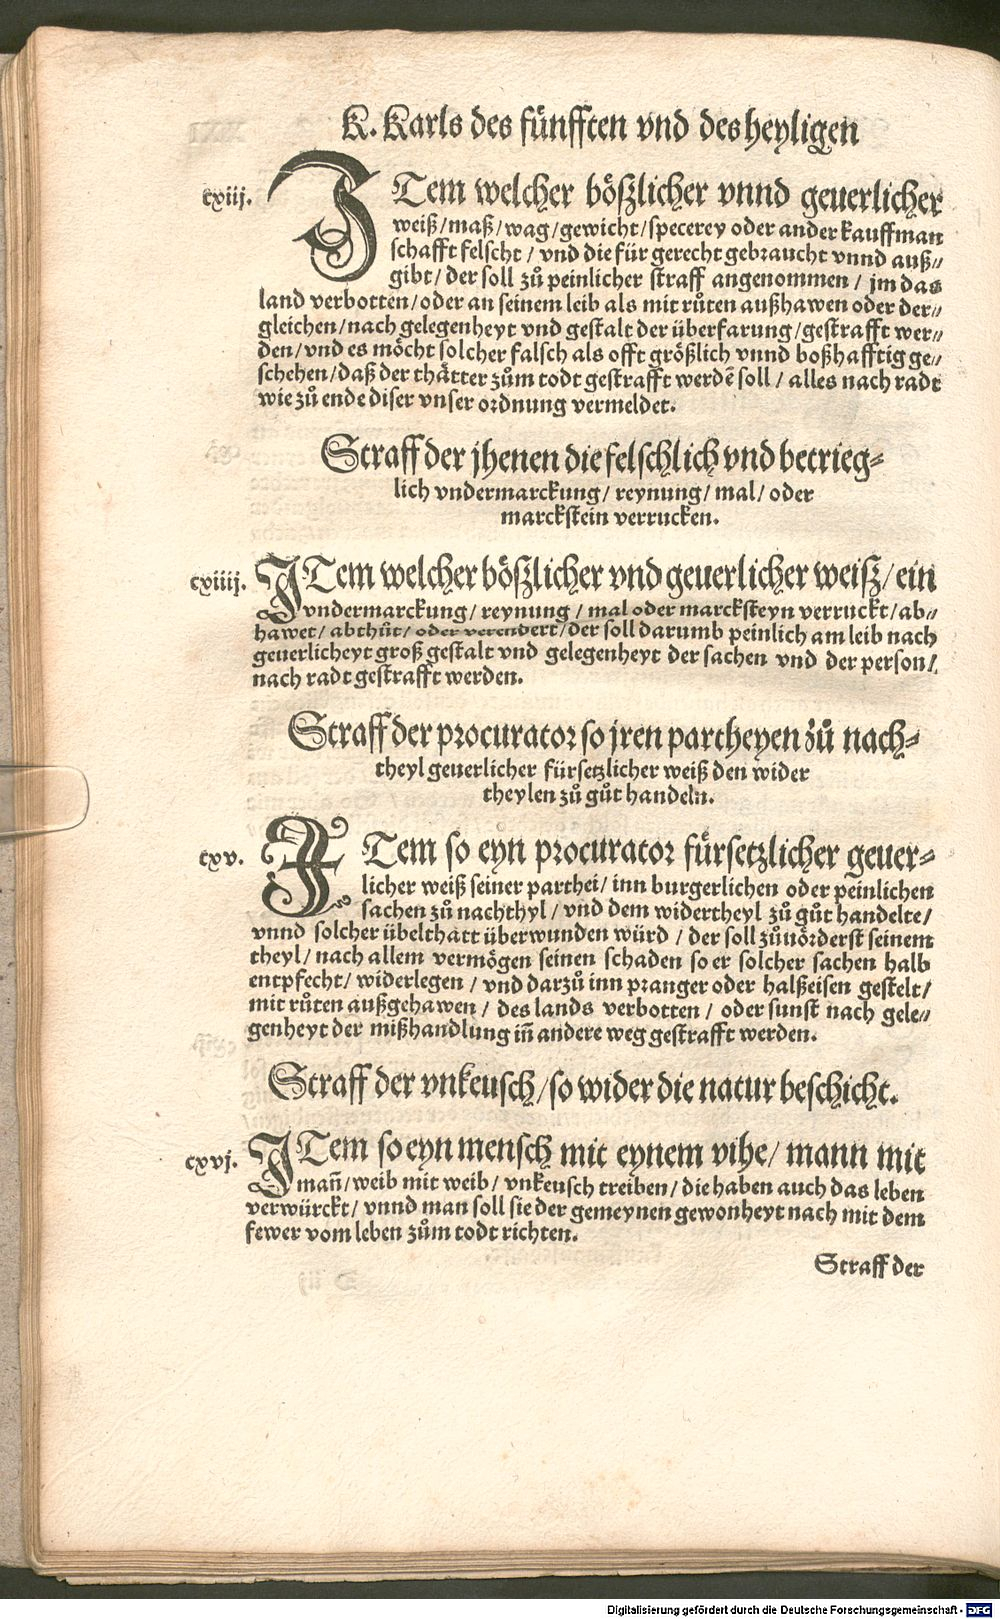 K. Karls des fünfften vnd des heyligen
cxiij. ITem welcher bößlicher vnnd geuerlicher
weiß/maß/wag/gewicht/specerey oder ander kauffman
schafft felscht/ vnd die für gerecht gebraucht vnnd auß⸗
gibt/ der soll zů peinlicher straff angenommen/ jm das
land verbotten/oder an seinem leib als mit růten außhawen oder der⸗
gleichen/nach gelegenheyt vnd gestalt der überfarung/gestrafft wer⸗
den/vnd es möcht solcher falsch als offt größlich vnnd boßhafftig ge⸗
schehen/daß der thätter zům todt gestrafft werdē soll/ alles nach radt
wie zů ende diser vnser ordnung vermeldet.
Straff der jhenen die felschlich vnd betrieg⸗
lich vndermarckung/ reynung/ mal/ oder
marckstein verrucken.
cxiiij. ITem welcher bößlicher vnd geuerlicher weiß/ ein
vndermarckung/ reynung/ mal oder marcksteyn verruckt/ ab⸗
hawet/ abthůt/ oder verendert/ der soll darumb peinlich am leib nach
geuerlicheyt groß gestalt vnd gelegenheyt der sachen vnd der person/
nach radt gestrafft werden.
Straff der procurator so jren partheyen zů nach⸗
theyl geuerlicher fürsetzlicher weiß den wider
theylen zů gůt handeln.
cxv. ITem so eyn procurator fürsetzlicher geuer⸗
licher weiß seiner parthei/ inn burgerlichen oder peinlichen
sachen zů nachthyl/ vnd dem widertheyl zů gůt handelte/
vnnd solcher übelthatt überwunden würd/ der soll zůuörderst seinem
theyl/ nach allem vermögen seinen schaden so er solcher sachen halb
entpfecht/ widerlegen/ vnd darzů inn pranger oder halßeisen gestelt/
mit růten außgehawen/ des lands verbotten/ oder sunst nach gele⸗
genheyt der mißhandlung iñ andere weg gestrafft werden.
Straff der vnkeusch/so wider die natur beschicht.
cxvj. ITem so eyn mensch mit eynem vihe/ mann mit
mañ/weib mit weib/ vnkeusch treiben/ die haben auch das leben
verwürckt/ vnnd man soll sie der gemeynen gewonheyt nach mit dem
fewer vom leben zům todt richten.
Straff der
Digitalisierung gefördert durch die Deutsche Forschungsgemeinschaft - DFG